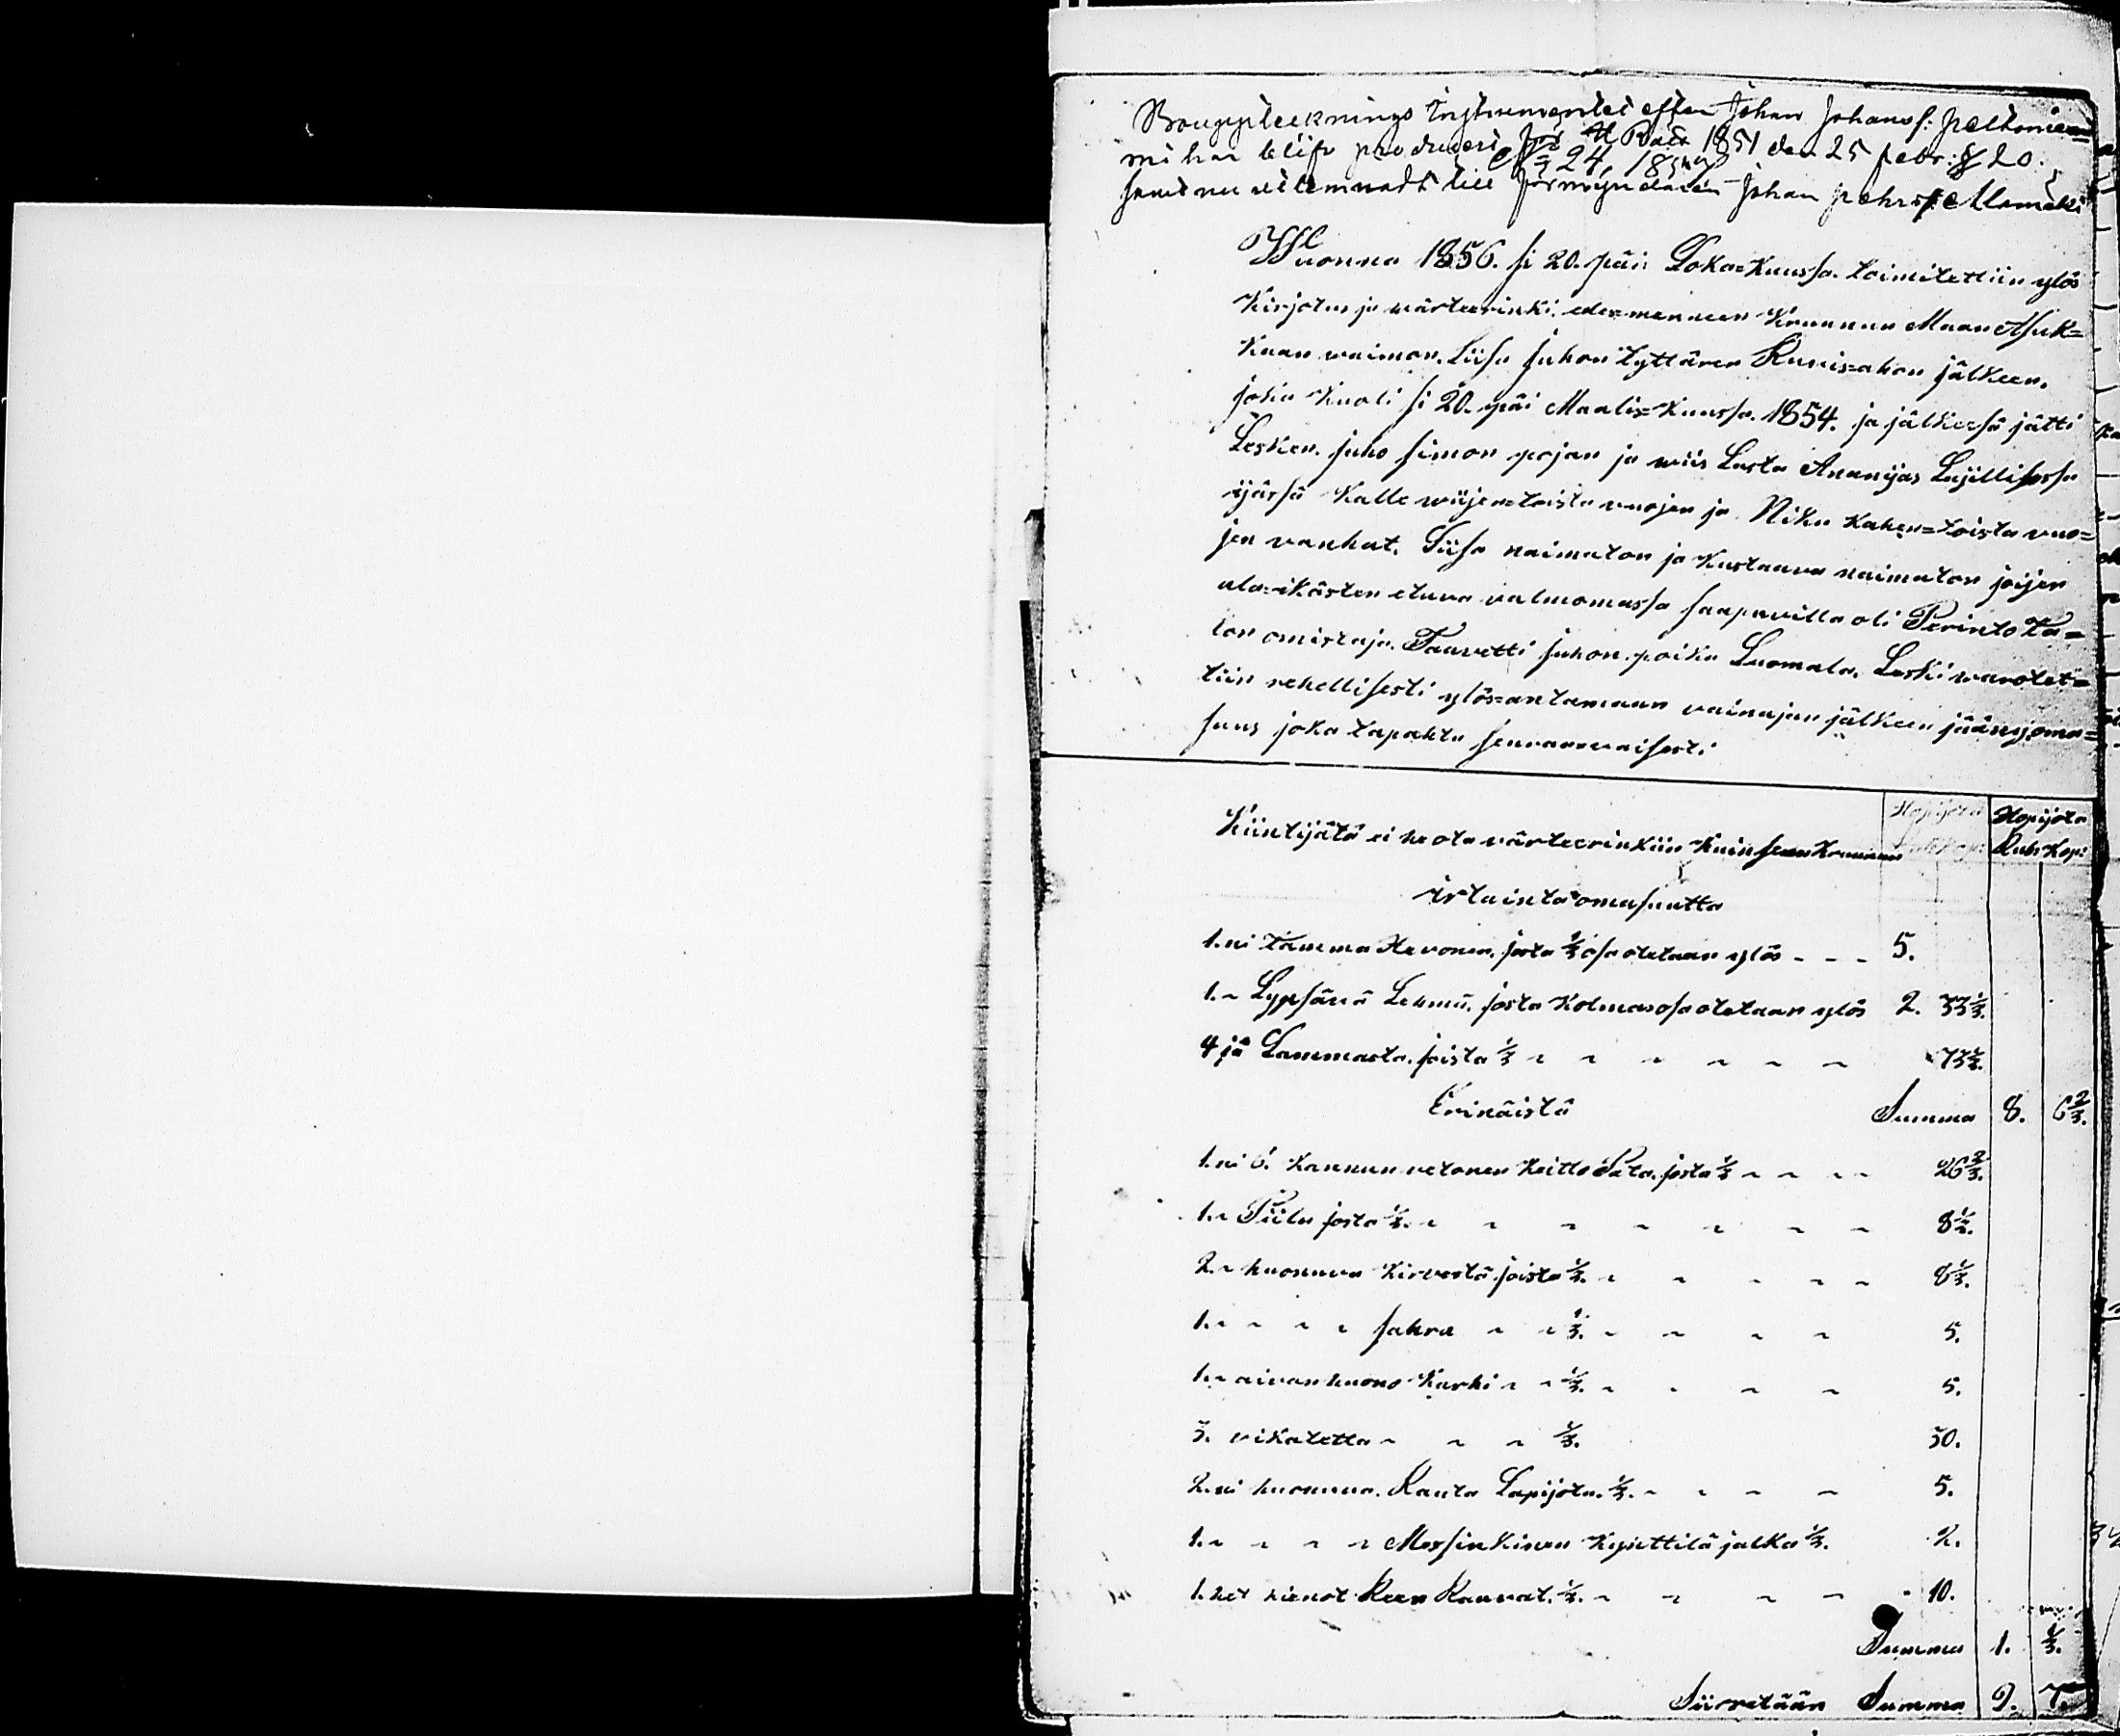 Bouppteknings instrumentet efter Johan Johans s: Peltoniem=
mi har blifv produceri 1851 den 25 febr: § 20.
N= 24, 1857
samt nu utlemnadt till förmyndaren Johan Pehrs s: Alamäki
Wuonna 1856. si 20. päi: Loka=Kuussa. toimitettiin ylös
Kirjotus ja wärteerinki. edes=menneen Kruunun Maan Asuk=
Kaan waimon. Liisa Juhon tyttären Ruuis=ahon jälkeen.
joka Kuoli si 20. päi Maalis=Kuussa. 1854. ja jälkeesä jätti
Lesken. Juho Simon pojan ja wiis Lasta Ananijas Lajillisessa
ijäsä Kalle wiijen=toista vuojen ja Nika Kahen=toista vuo=
jen vanhat. Liisa naimaton ja Kustaava naimaton joijen
ala=ikästen etuva valwomassa saapuvilla oli Perinto Ta=
lon omistaja. Taavetti Juhon poika Luomala. Leski warotet=
tiin rehellisesti ylös=antamaan vainajan jälkeen jääny oma=
suus joka tapahtu seuraavaisesti
Hopijota Hopijota
Kiintijätä ei he ota värteerinkiin Kuin se on Kruunun Rub: Kop: Rub: Kop:
irtainta omasuutta
1. ni Tamma Hevonen. josta 1/3 osa otetaan ylös - - - 5.
1. ~ Lypsävä Lehmä. josta Kolmasosa otetaan ylös 2. 33 1/3.
4 jä Lammasta. joista 1/3 ~ ~ ~ ~ ~ ~ 73 1/3.
Erinäistä Summa 8. 6 2/3.
1. ni 6. Kannun vetonen Keitto Pata. josta 1/3 ~ ~ ~ ~ 26 2/3.
1. ~ Piilu josta 1/3. ~ ~ ~ ~ ~ ~ ~ 8 1/3.
2. ~ huonuva Kirvestä joista 1/3. ~ ~ ~ ~ ~ 8 1/3.
1. ~ ~ ~ ~ sahra ~ ~ 1/3. ~ ~ ~ ~ 5.
1. ~ aivan huono Karhi ~ ~ 1/3. ~ ~ ~ ~ 5.
3. vikatetta ~ ~ ~ 1/3. 30.
2. ni huonuva. Rauta Lapijota. 1/3. ~ ~ ~ ~ 5.
1. ~ ~ ~ ~ Messinkinen Kynttilä jalka 1/3. 2.
1. het hienot Reen Rauvat. 1/3. ~ ~ ~ ~ 10.
Summa 1. 1/3.
Siirretään Summa 9. 7.